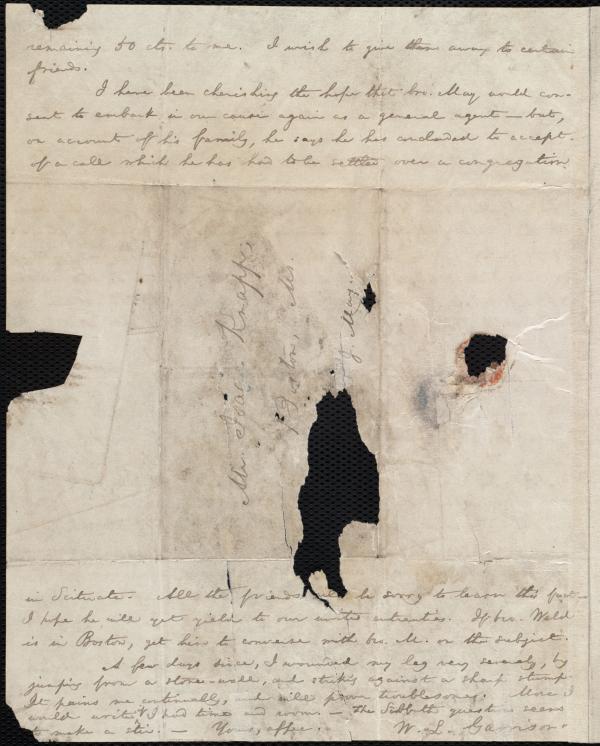 remaining 50 cts. to me. I wish to give them away to certain
friends.
I have been cherishing the hope that bro. May would con-
sent to embark in our cause again as a general agent — but,
on account of his family, he says he has concluded to accept
of a call which he has had to be settled over a congregation
Mr. Isaac Knapp,
Boston, Ms.
May.
in Scituate. All the friends will be sorry to learn this fact.
I hope he will yet yield to our united entreaties. If bro. Weld
is in Boston, get him to converse with bro. M. on the subject.
A few days since, I wounded my leg very severely, by
jumping from a stone-wall, and striking against a sharp stump.
It pains me continually, and will prove troublesome. More I
would write, if I had time and room. — The Sabbath question seems
to make a stir. — Yours, affec. W. L. Garrison.